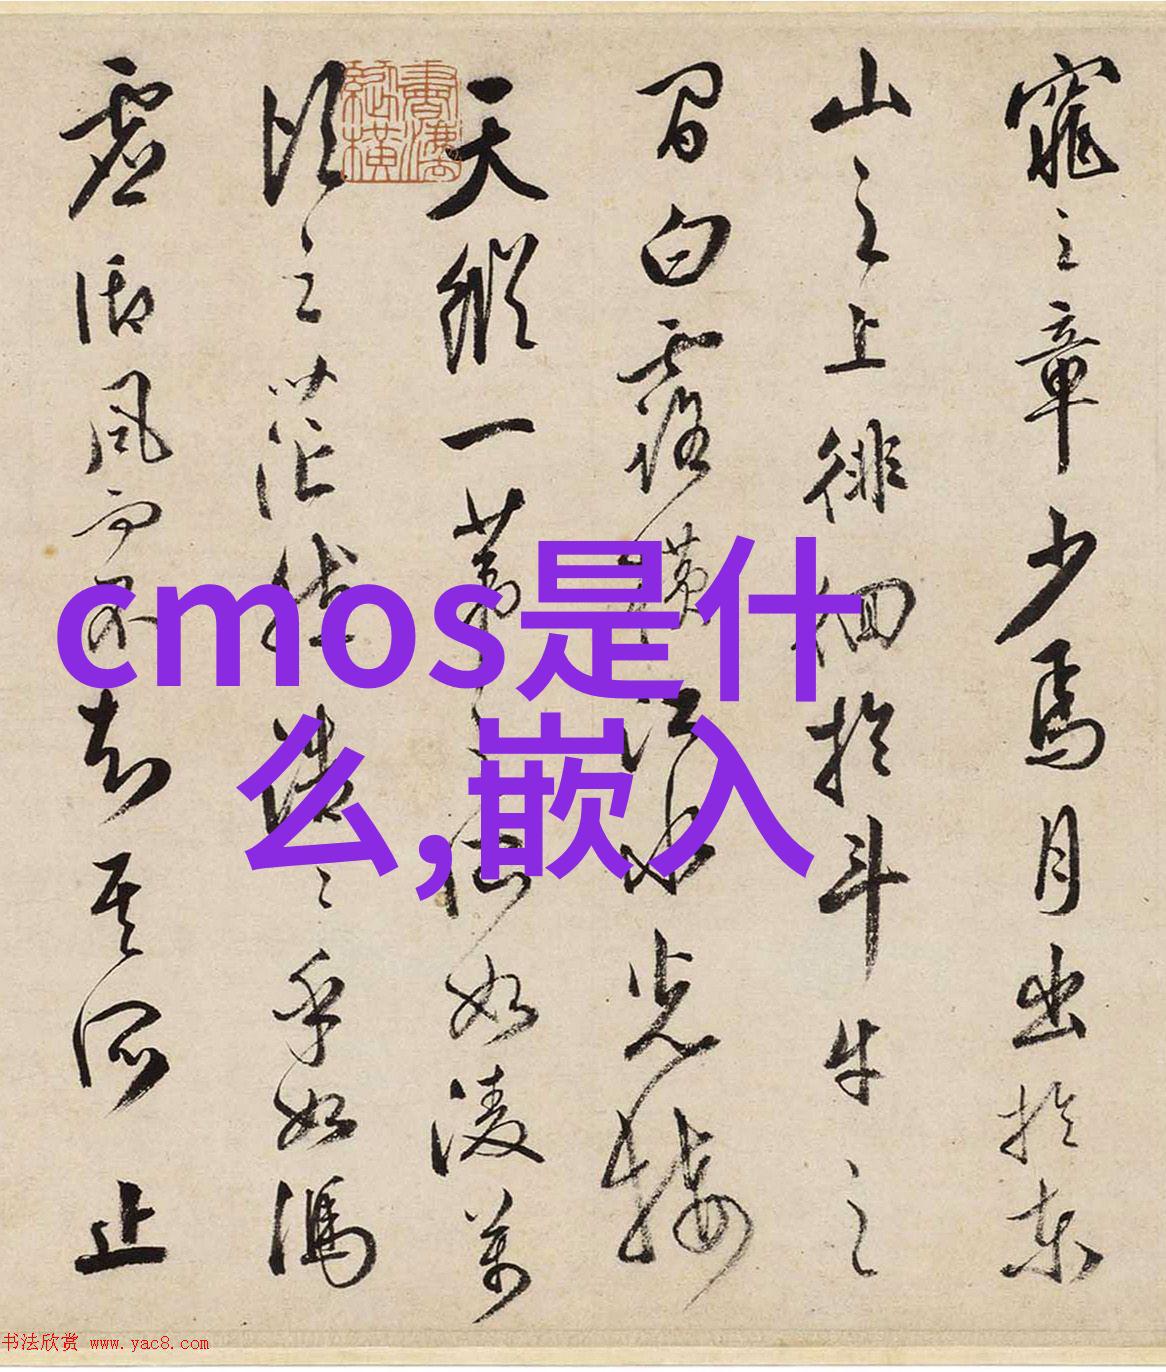 窕之章少焉月出於東
山之上徘徊於斗牛之
間白露横江水光接
天縱一葦之所如陵萬
頃之茫然浩〻乎如馮
虚御風而不知其所止
cmos是什
么,嵌入
书法欣赏 www.yac8.com